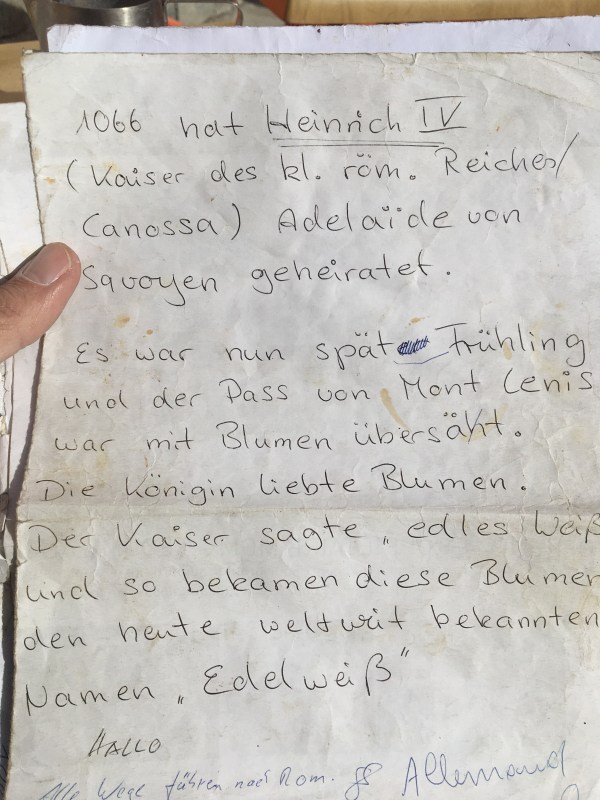 1066 hat Heinrich IV
(Kaiser des kl. röm. Reiches/
Canossa) Adelaïde von
Savoyen geheiratet.
Es war nun spät Frühling
und der Pass von Mont Cenis
war mit Blumen übersäht.
Die Königin liebte Blumen.
Der Kaiser sagte „edles Weiß
und so bekamen diese Blumen
den heute weltweit bekannten
Namen „Edelweiß"
HALLO
Alle Wege führen nach Rom.
Allemand